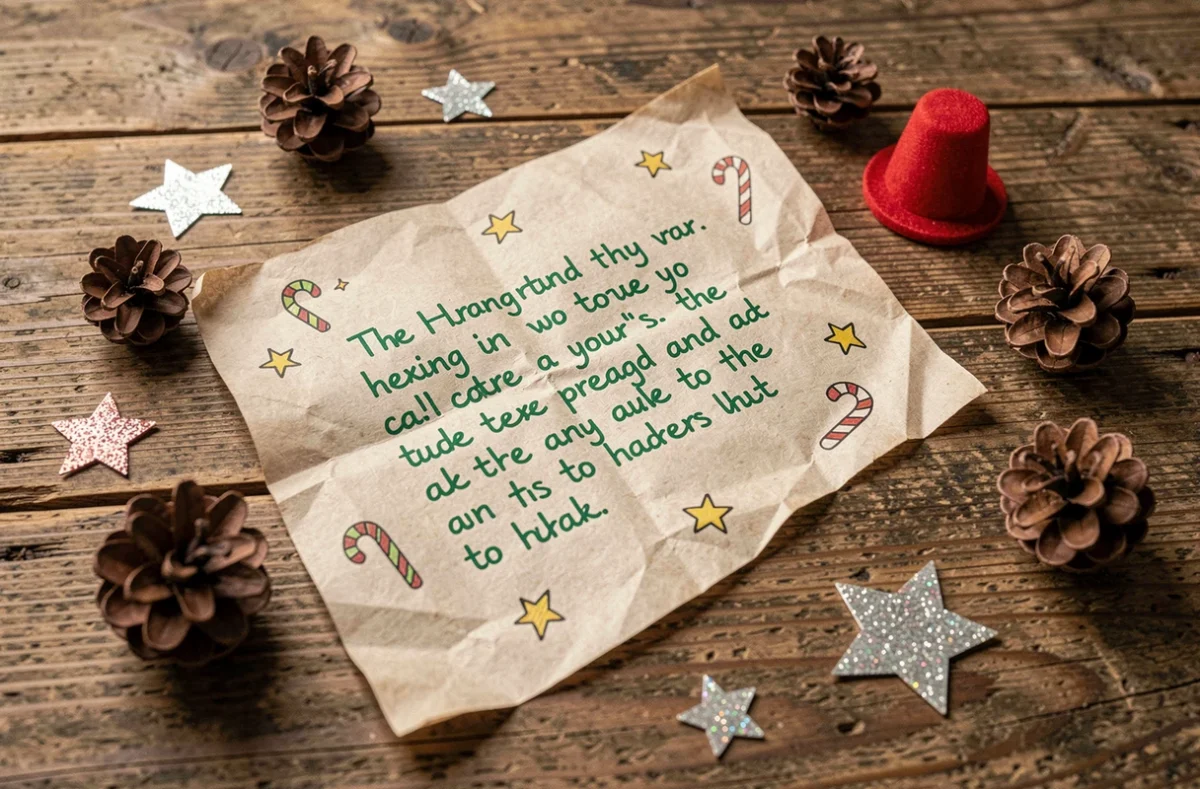 The Hrangrtund thy var.
hexing in wo toue yo
call cotre a your"s. the
tude texe preagd and ad
ak the any aule to the
aun tis to haders lhut
to hutak.